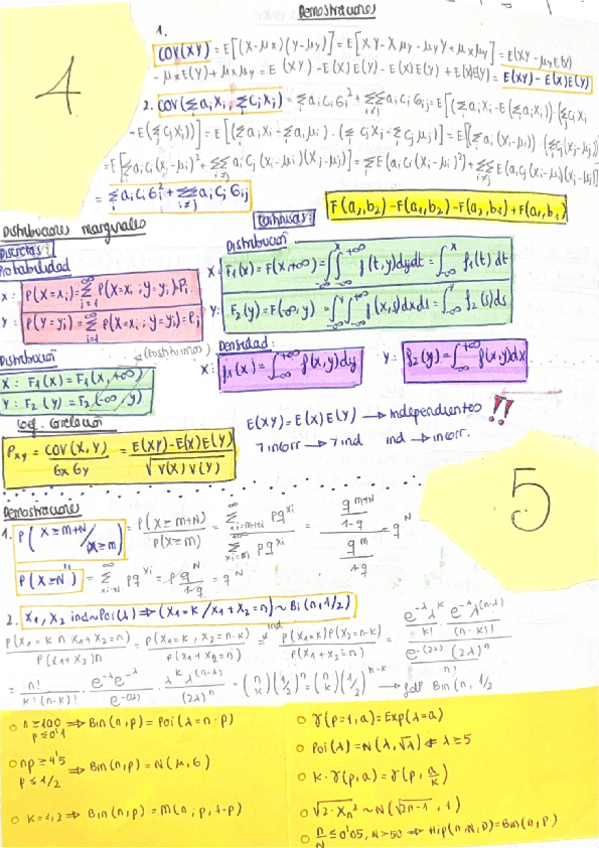 Demostraciones
4
1.
COV(XY) = E[(X-μx)(Y-μy)] = E[XY - Xμy - μxY + μxμy] = E(XY) - μyE(X)
- μxE(Y) + μxμy = E(XY) - E(X)E(Y) - E(X)E(Y) + E(X)E(Y) = E(XY) - E(X)E(Y)
2. COV(Σaixi, Σcjxj) = Σaiciσi² + ΣΣaicjσij = E[(Σaixi - E(Σaixi))·(Σcjxj
- E(Σcjxj))] = E[(Σaixi - Σaiμi)·(Σcjxj - Σcjμj)] = E[(Σai(xi-μi))·(Σcj(xj-μj))]
= E[Σaici(xi-μi)² + ΣΣaicj(xi-μi)(xj-μj)] = ΣE(aici(xi-μi)²) + ΣΣE(aicj(xi-μi)(xj-μj))
= Σaiciσi² + ΣΣaicjσij
F(a2,b2) - F(a1,b2) - F(a2,b1) + F(a1,b1)
Distribuciones marginales
Discretas:
Continuas:
Probabilidad
Distribución
X: P(X=xi) = Σ P(X=xi; Y=yi) = Pi.
Y: P(Y=yi) = Σ P(X=xi; Y=yi) = Pj
X: F1(x) = F(x,+∞) = ∫∫ f(t,y)dydt = ∫ f1(t)dt
Y: F2(y) = F(∞,y) = ∫∫ f(x,s)dxds = ∫ f2(s)ds
Distribución
(sustituimos)
X: F1(x) = F1(x,+∞)
Y: F2(y) = F2(-∞,y)
Densidad:
X: f1(x) = ∫ f(x,y)dy
Y: f2(y) = ∫ f(x,y)dx
Coef. Correlación
Pxy = COV(X,Y) / σxσy = E(XY) - E(X)E(Y) / √V(X)V(Y)
E(XY) = E(X)E(Y) → independientes !!
7 incorr → 7 ind   ind → incorr.
5
Demostraciones
1. P(X≥m+N / X≥m) = P(X≥m+N) / P(X≥m) = Σ pq^xi / Σ pq^xi = (q^(m+N) / 1-q) / (q^m / 1-q) = q^N
P(X≥N) = Σ pq^xi = p q^N / 1-q = q^N
2. X1, X2 ind ~ Poi(λ) ⇒ (X1=K / X1+X2=n) ~ Bi(n, 1/2)
P(X1=K ∩ X1+X2=n) / P(X1+X2)n = P(X1=K, X2=n-K) / P(X1+X2=n) = ind P(X1=K)P(X2=n-K) / P(X1+X2=n) = (e^-λ λ^K / K! · e^-λ λ^(n-K) / (n-K)!) / (e^-(2λ) (2λ)^n / n!)
= n! / K!(n-K)! · e^-λ e^-λ / e^-(2λ) · λ^K λ^(n-K) / (2λ)^n = (n K)(1/2)^n = (n K)(1/2)^K (1/2)^n-K → fdp Bin(n, 1/2
○ n≥100 p≤0'1 ⇒ Bin(n,p) = Poi(λ=n·p)
○ np≥4'5 p≤1/2 ⇒ Bin(n,p) = N(μ,σ)
○ K=1,2 ⇒ Bin(n,p) = M(n; p, 1-p)
○ γ(p=1,a) = Exp(λ=a)
○ Poi(λ) = N(λ,√λ) ⇐ λ≥5
○ K·γ(p,a) = γ(p, a/K)
○ √2·Xn² ~ N(√2n-1, 1)
○ n/N ≤ 0'05, N>50 ⇒ Hip(n,N,D) = Bin(n,p)